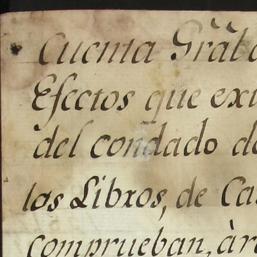 Cuenta Grãl d
Efectos que exi
del condado de
los Libros, de Ca
comprueban, àr